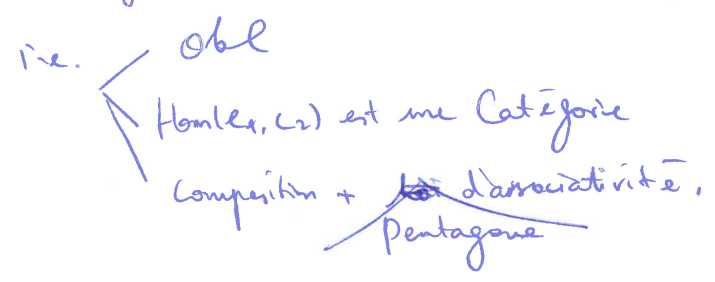 i.e.
Ob C
Hom(C1, C2) est une Catégorie
Composition + d'associativité,
Pentagone